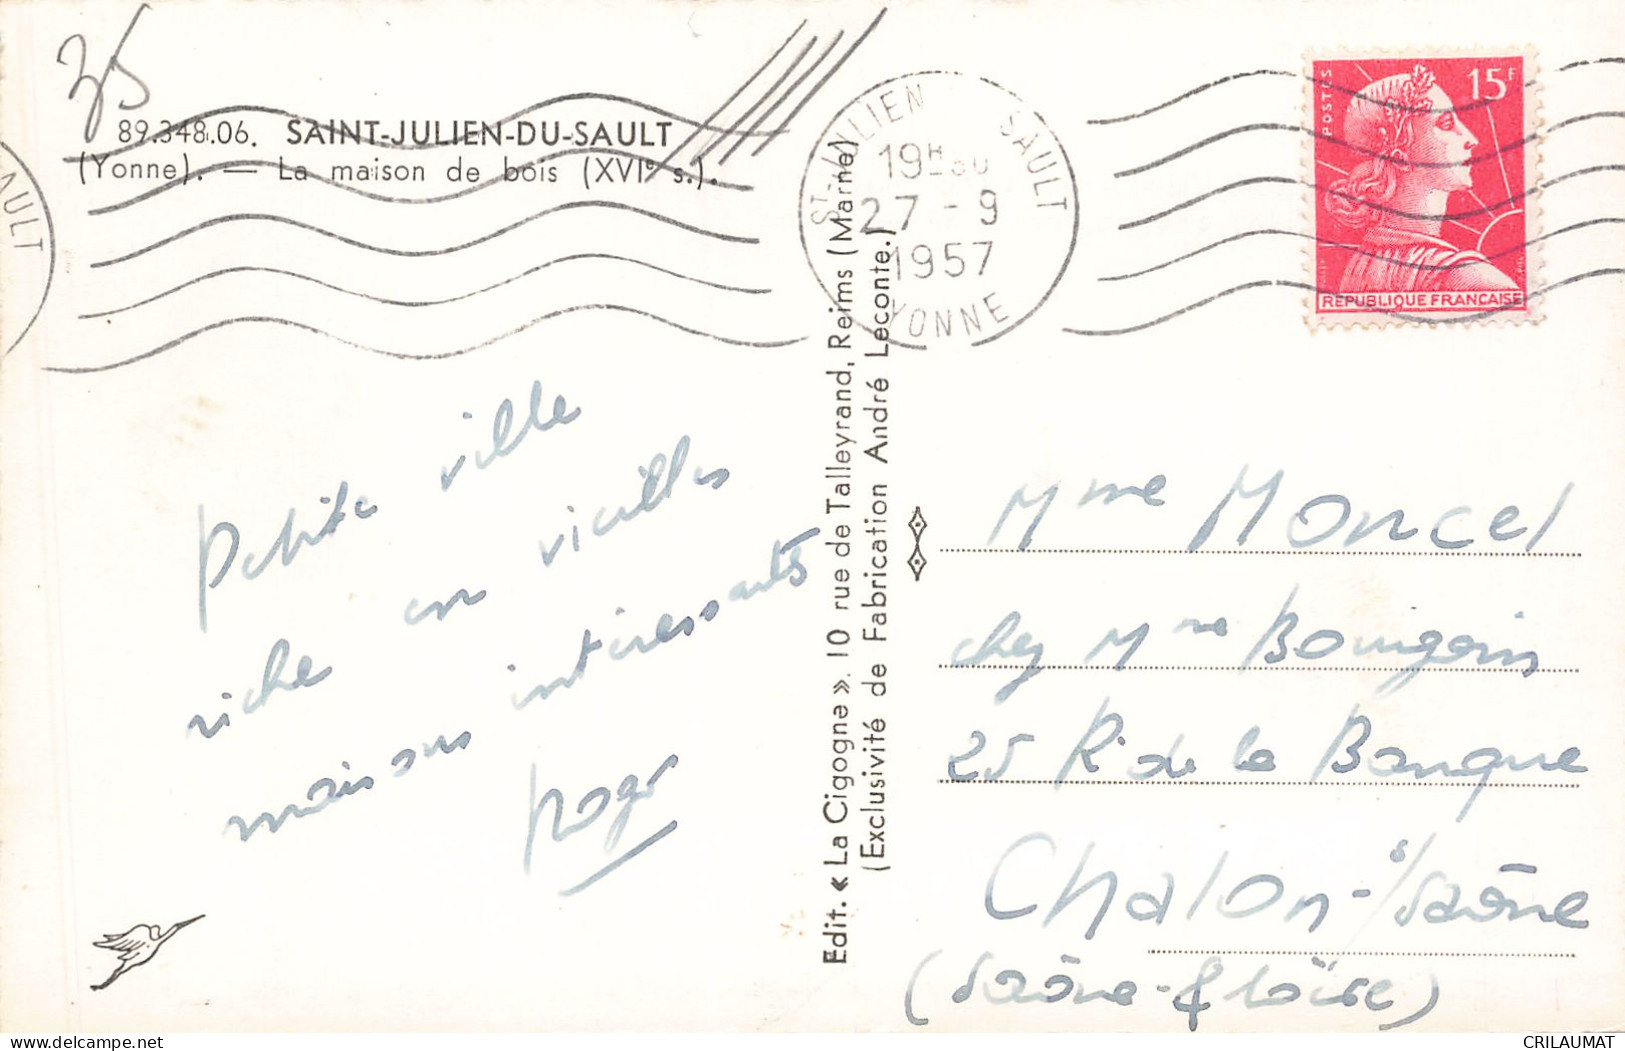 35
89.348.06. SAINT-JULIEN-DU-SAULT
(Yonne). — La maison de bois (XVIe s.).
AULT
ST-JULIEN SAULT
19H30
27 - 9
1957
YONNE
POSTES
15F
REPUBLIQUE FRANÇAISE
Petite ville
riche en vieilles
maisons intéressants
Roger
Edit. « La Cigogne ». 10 rue de Talleyrand, Reims (Marne)
(Exclusivité de Fabrication André Leconte.)
Mme Moncel
chez Mme Bourgoin
25 R. de la Banque
Chalon-s/Saône
(Saône-&-Loire)
CRILAUMAT